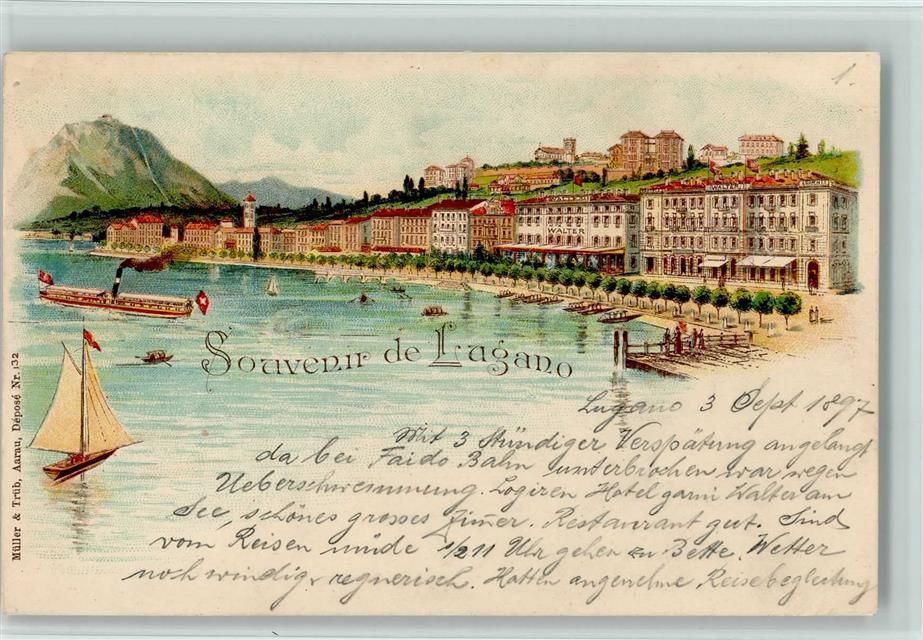 1.
WALTER
WALTER
Souvenir de Lugano
Müller & Trüb, Aarau, Déposé Nr. 132
Lugano 3 Sept 1897
Mit 3 Stündiger Verspätung angelangt
da bei Faido Bahn unterbrochen war wegen
Ueberschwemmung. Logiren Hotel garni Walter am
See, schönes grosses Zim̅er. Restaurant gut. Sind
vom Reisen müde 1/2 11 Uhr gehen zu Bette. Wetter
noch windig & regnerisch. Hatten angenehme Reisebegleitung